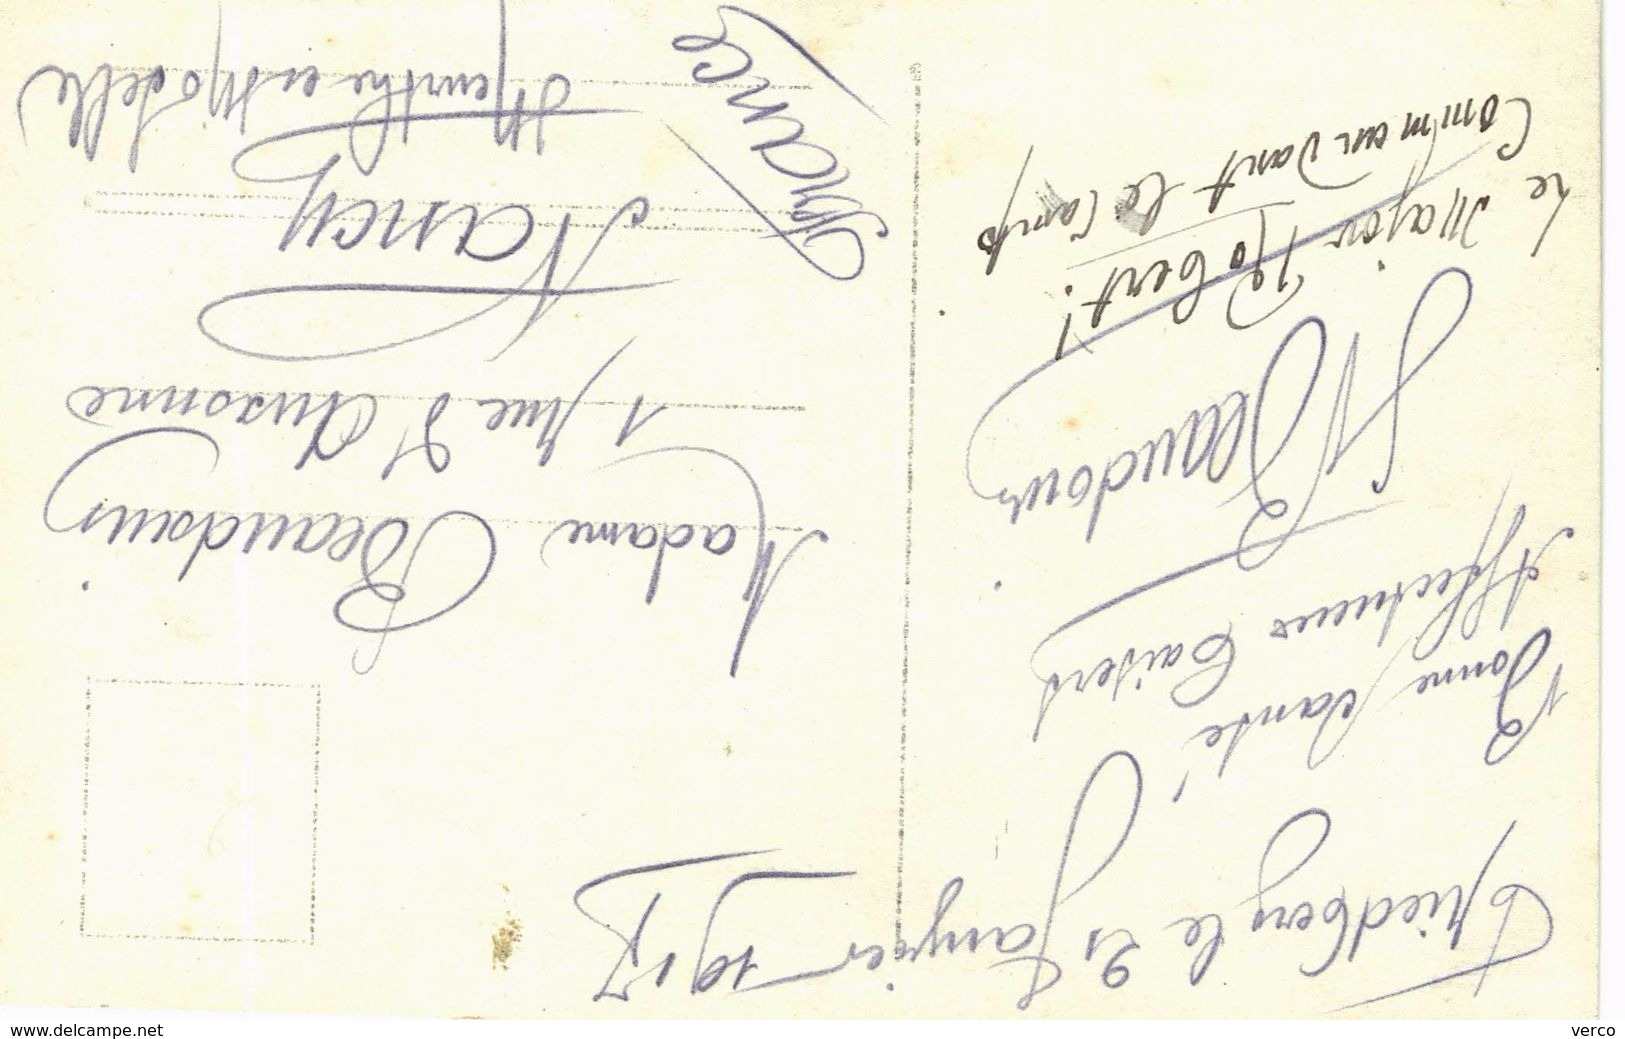 Friedberg le 21 Janvier 1917
Bonne Santé
Affectueux baisers
Beaudouin
Le Major Robert!
Commandant le Camp
Madame Beaudouin
1, rue d'Auxonne
Nancy
Meurthe et Moselle
France
www.delcampe.net
verco